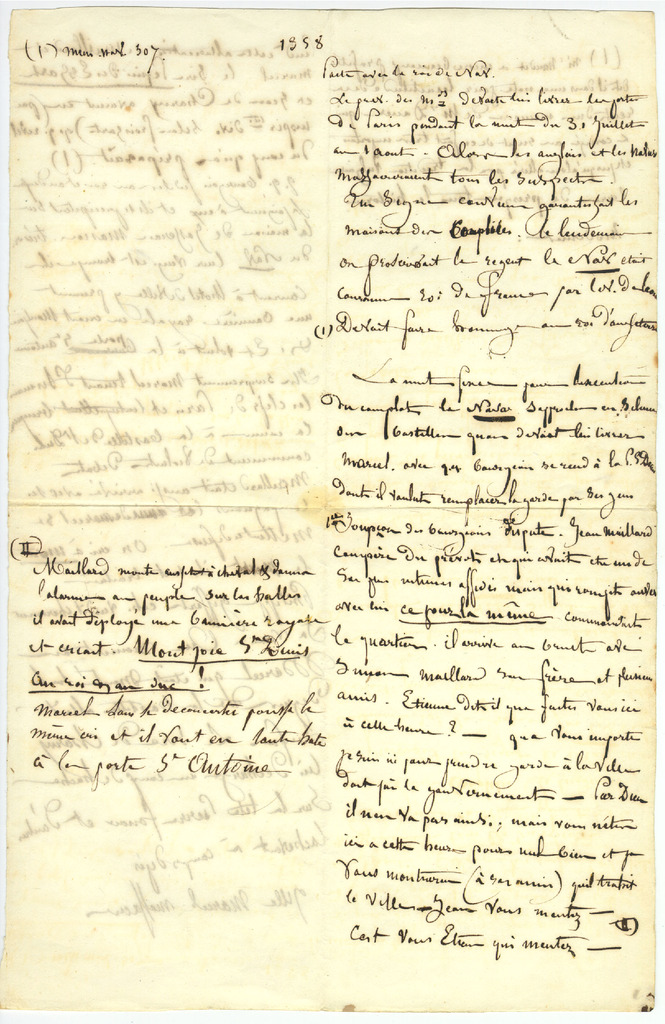 (1) mem. nav. 307.
1358
Pacte avec le roi de Nav.
Le prev. des Mds devait lui livrer les portes
de Paris pendant la nuit du 31 Juillet
au 1 aout. Alors les anglais et les Navar
Massacreraient tous les suspects.
Un Signe convenu garantissait les
maisons des Complices. le lendemain
on proscrivait le regent le Nav était
couronné roi de france par l'év. de Laon
(1) Devait faire hommage au roi d'angleterre
La nuit fixée pour l'execution
du complot le Navar s'approche
des bastilles que devait lui livrer
Marcel. avec qq bourgeois se rend à la P. St Den
dont il voulut remplacer la garde par ses gens
1er Soupçon des bourgeois dispute. Jean Maillard
compère du prévôt et qui avait été un de
ses plus intimes affidés mais qui rompit
avec lui ce jour là même commandait
le quartier. il arrive au bruit avec
Simon Maillard son frère et plusieurs
amis. Etienne dit il que faites vous ici
à cette heure ? — que vous importe
je suis ici pour prendre garde à la Ville
dont j'ai le gouvernement — Par Dieu
il n'en va pas ainsi ; mais vous n'êtes
ici a cette heure pour nul bien et je
vous montrerai (à ses amis) qu'il trahit
la Ville — Jean vous mentez —
(II)
C'est vous Etienne qui mentez —
(II)
Maillard monte ensuite à cheval & donne
l'alarme au peuple sur les halles
il avait déployé une bannière royale
et criait. Mont joie St Denis
au roi et au duc !
Marcel se découverte pousse le
même cri et il vont en toute hate
à la porte St Antoine